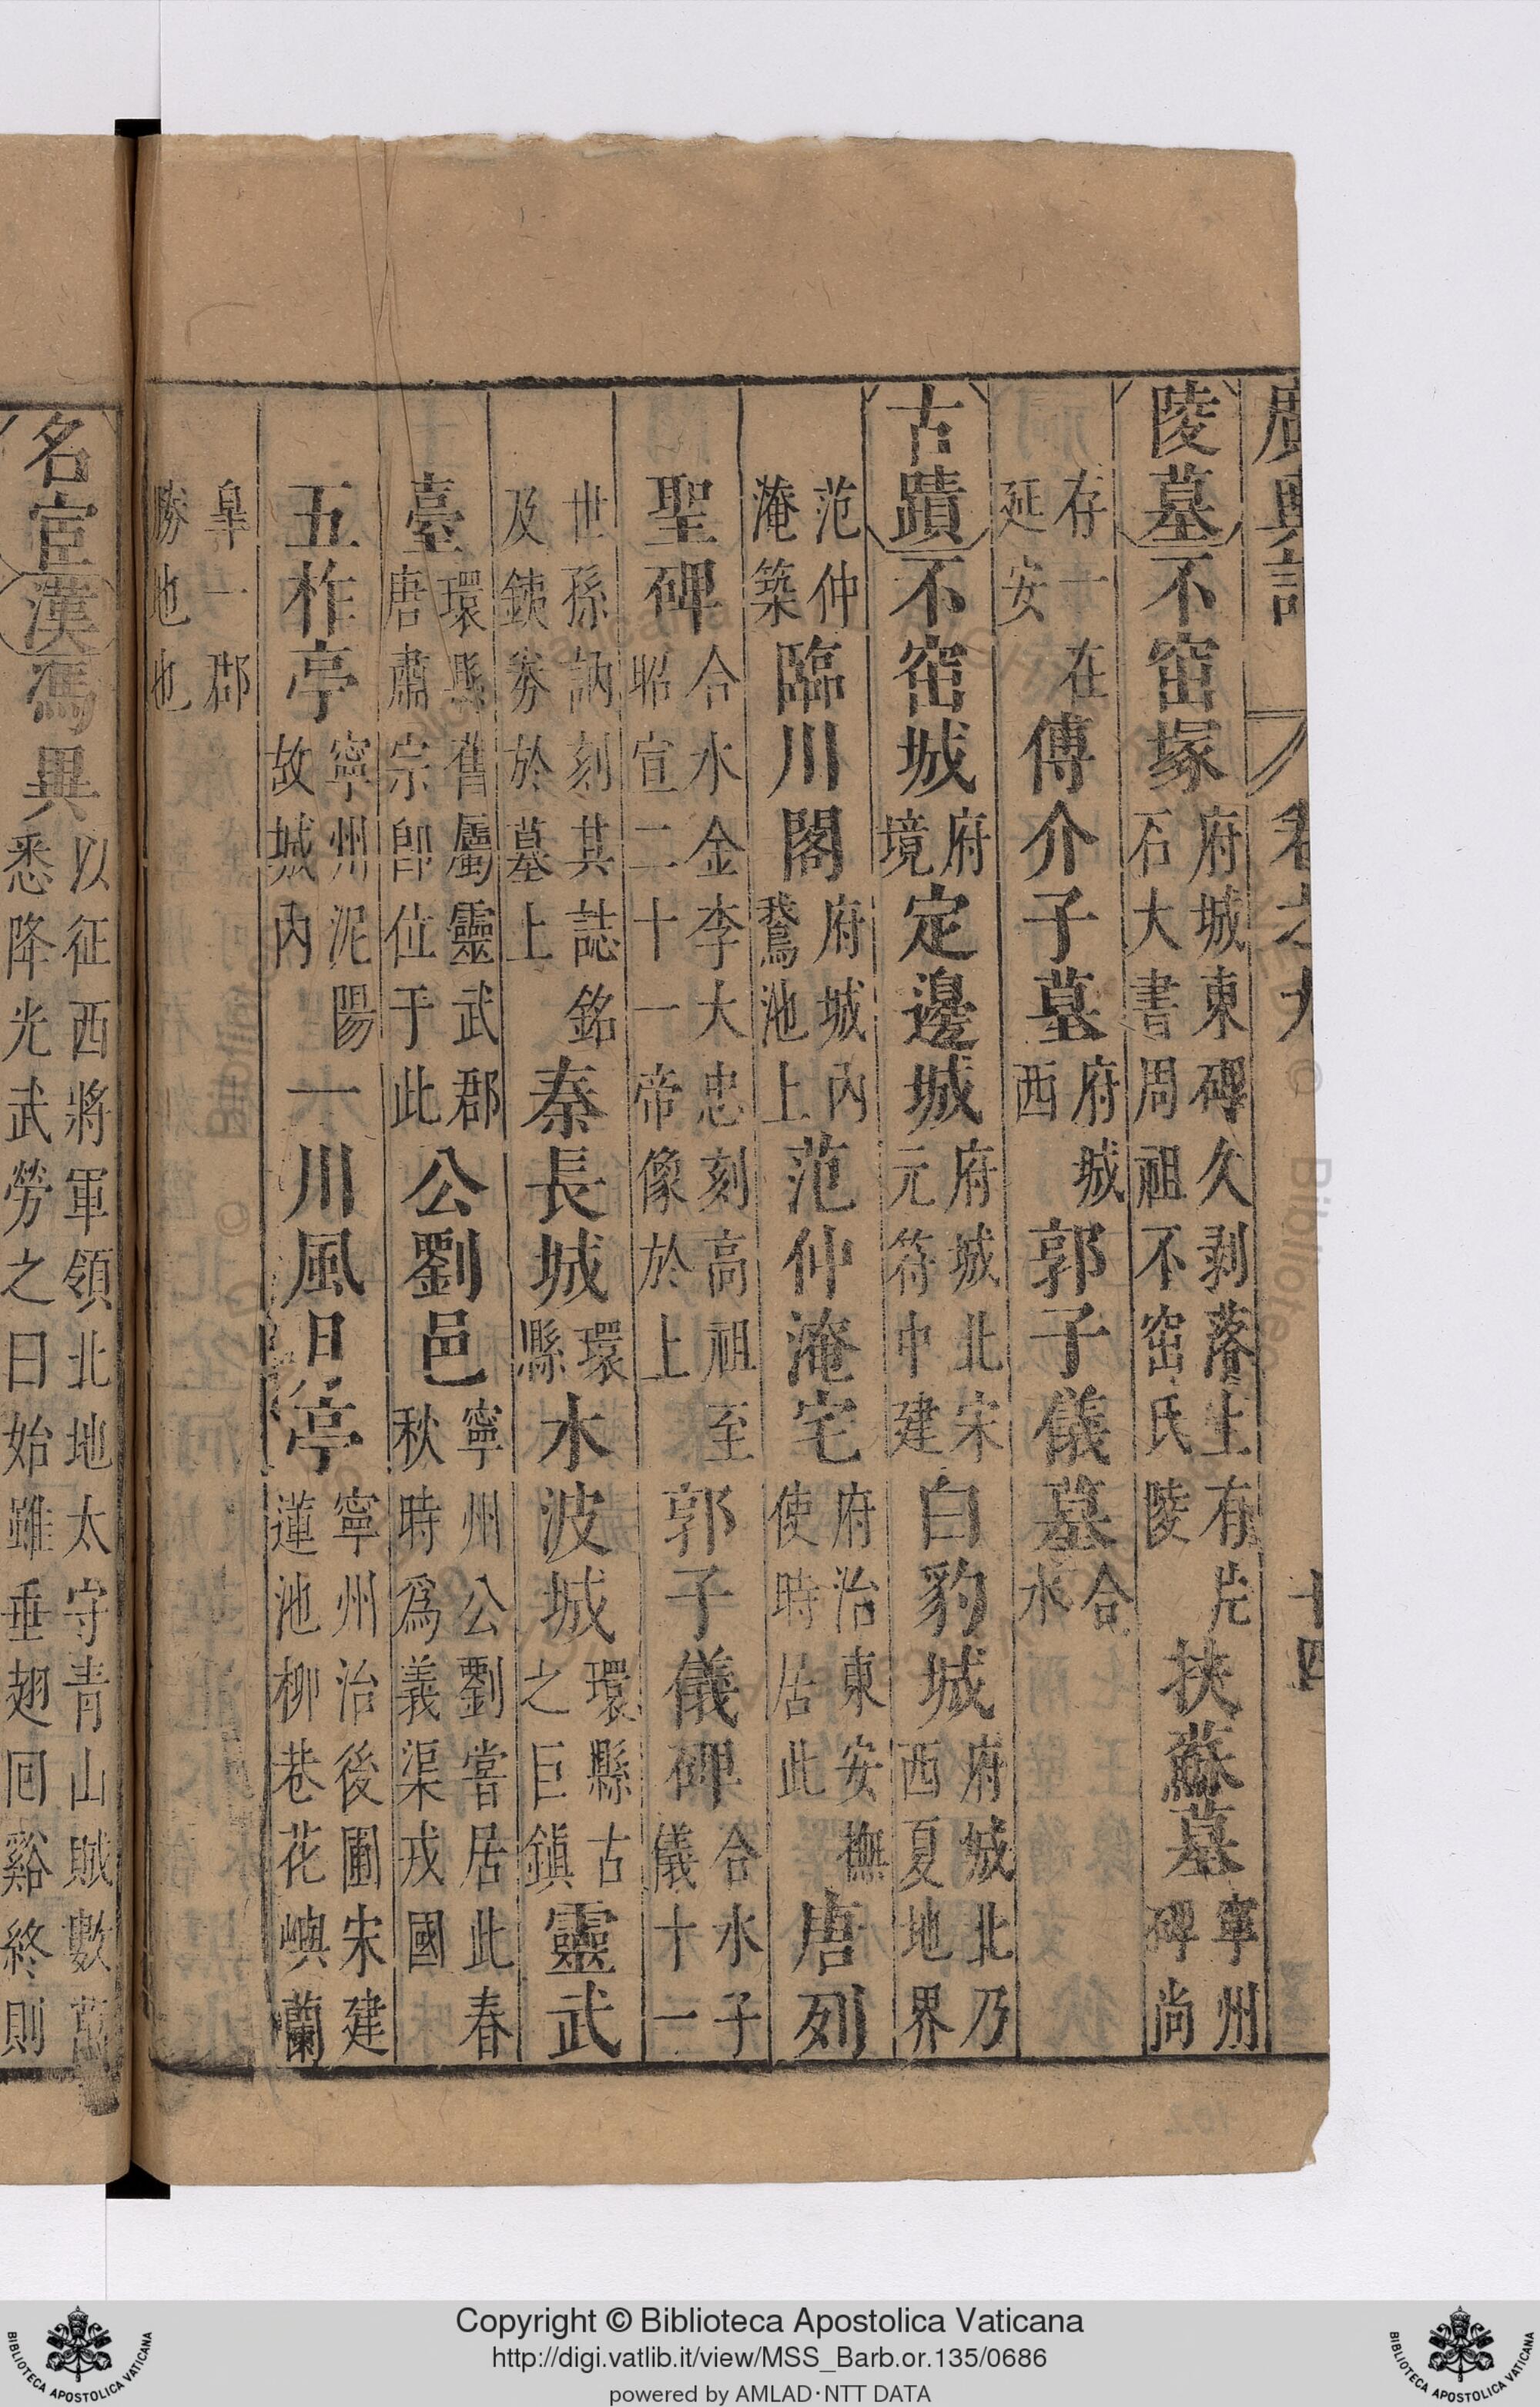 廣輿記 卷之九 十四
陵墓 不窋塚 府城東碑久剥落止有片石大書周祖不窋氏陵 挾蘇墓 寧州碑尚
存一在延安 傅介子墓 府城西 郭子儀墓 合水
古蹟 不窋城 府境 定邊城 府城北宋元符中建 白豹城 府城北乃西夏地界
范仲淹築 臨川閣 府城內鵞池上 范仲淹宅 府治東安撫使時居此 唐列
聖碑 合水金李大忠刻高祖至昭宣二十一帝像於上 郭子儀碑 合水子儀十一
世孫訥刻其誌銘及鉄券於墓上 秦長城 環縣 木波城 環縣古之巨鎮 靈武
臺 環縣舊屬靈武郡唐肅宗即位于此 公劉邑 寧州公劉嘗居此春秋時爲義渠戎國
五柞亭 寧州泥陽故城內 一川風月亭 寧州治後圃宋建蓮池柳巷花嶼蘭
皐一郡勝地也
名宦 漢 馮異 以征西將軍領北地太守青山賊數萬悉降光武勞之曰始雖垂翅回谿終則
Copyright © Biblioteca Apostolica Vaticana
http://digi.vatlib.it/view/MSS_Barb.or.135/0686
powered by AMLAD·NTT DATA
BIBLIOTECA APOSTOLICA VATICANA
BIBLIOTECA APOSTOLICA VATICANA